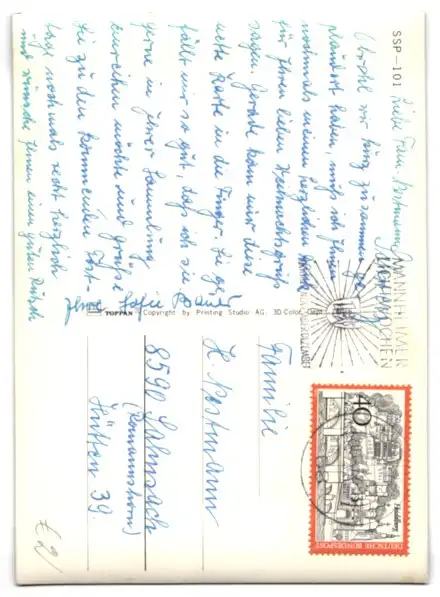 SSP-101
Liebe Frau Postmann,
Obwohl wir kurz zusammen ge-
plaudert haben, muß ich Ihnen
nochmals meinen herzlichen Dank
für Ihren lieben Weihnachtsgruß
sagen. Gerade kam mir diese
nette Karte in die Finger. Sie ge-
fällt mir so gut, daß ich sie
gerne in Ihrer Sammlung
einreihen möchte und grüße
Sie zu den kommenden Fest-
tage nochmals recht herzlich
und wünsche Ihnen einen guten Rutsch
Ihre Sofie Bauer
TOPPAN Copyright by Printing Studio AG. 3D Color Dept.
MANNHEIMER
WOCHEN
Familie
H. Postmann
8590
Hütten 39.
40
Heidelberg
DEUTSCHE BUNDESPOST